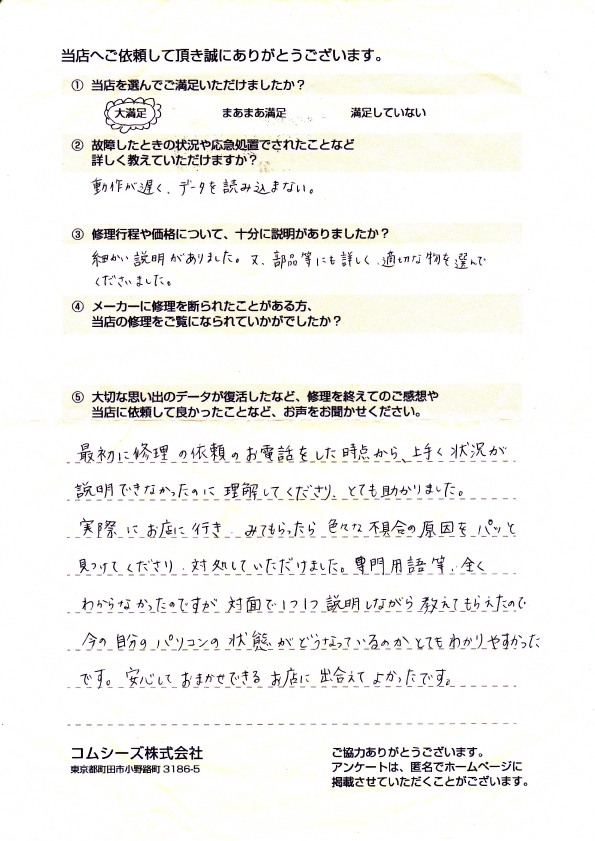 当店へご依頼して頂き誠にありがとうございます。
① 当店を選んでご満足いただけましたか？
大満足 まあまあ満足 満足していない
② 故障したときの状況や応急処置でされたことなど
詳しく教えていただけますか？
動作が遅く、データを読み込まない。
③ 修理行程や価格について、十分に説明がありましたか？
細かい説明がありました。又、部品等にも詳しく、適切な物を選んで
くださいました。
④ メーカーに修理を断られたことがある方、
当店の修理をご覧になられていかがでしたか？
⑤ 大切な思い出のデータが復活したなど、修理を終えてのご感想や
当店に依頼して良かったことなど、お声をお聞かせください。
最初に修理の依頼のお電話をした時点から、上手く状況が
説明できなかったのに理解してくださり、とても助かりました。
実際にお店に行き、みてもらったら色々な不具合の原因をパッと
見つけてくださり、対処していただけました。専門用語等、全く
わからなかったのですが対面で1つ1つ説明しながら教えてもらえたので
今の自分のパソコンの状態がどうなっているのかとてもわかりやすかった
です。安心しておまかせできるお店に出合えてよかったです。
コムシーズ株式会社
東京都町田市小野路町 3186-5
ご協力ありがとうございます。
アンケートは、匿名でホームページに
掲載させていただくことがございます。